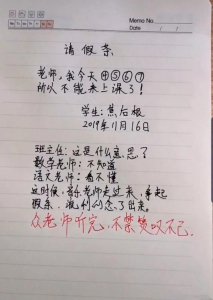 Memo No.
Date / /
请假条
老师，我今天④⑤⑥⑦
所以不能来上课了！
学生：焦后根
2019年11月16日
班主任：这是什么意思？
数学老师：不知道
语文老师：看不懂
这时候，音乐老师走过来，拿起
假条，流利的念了出来。
众老师听完，不禁赞叹不已